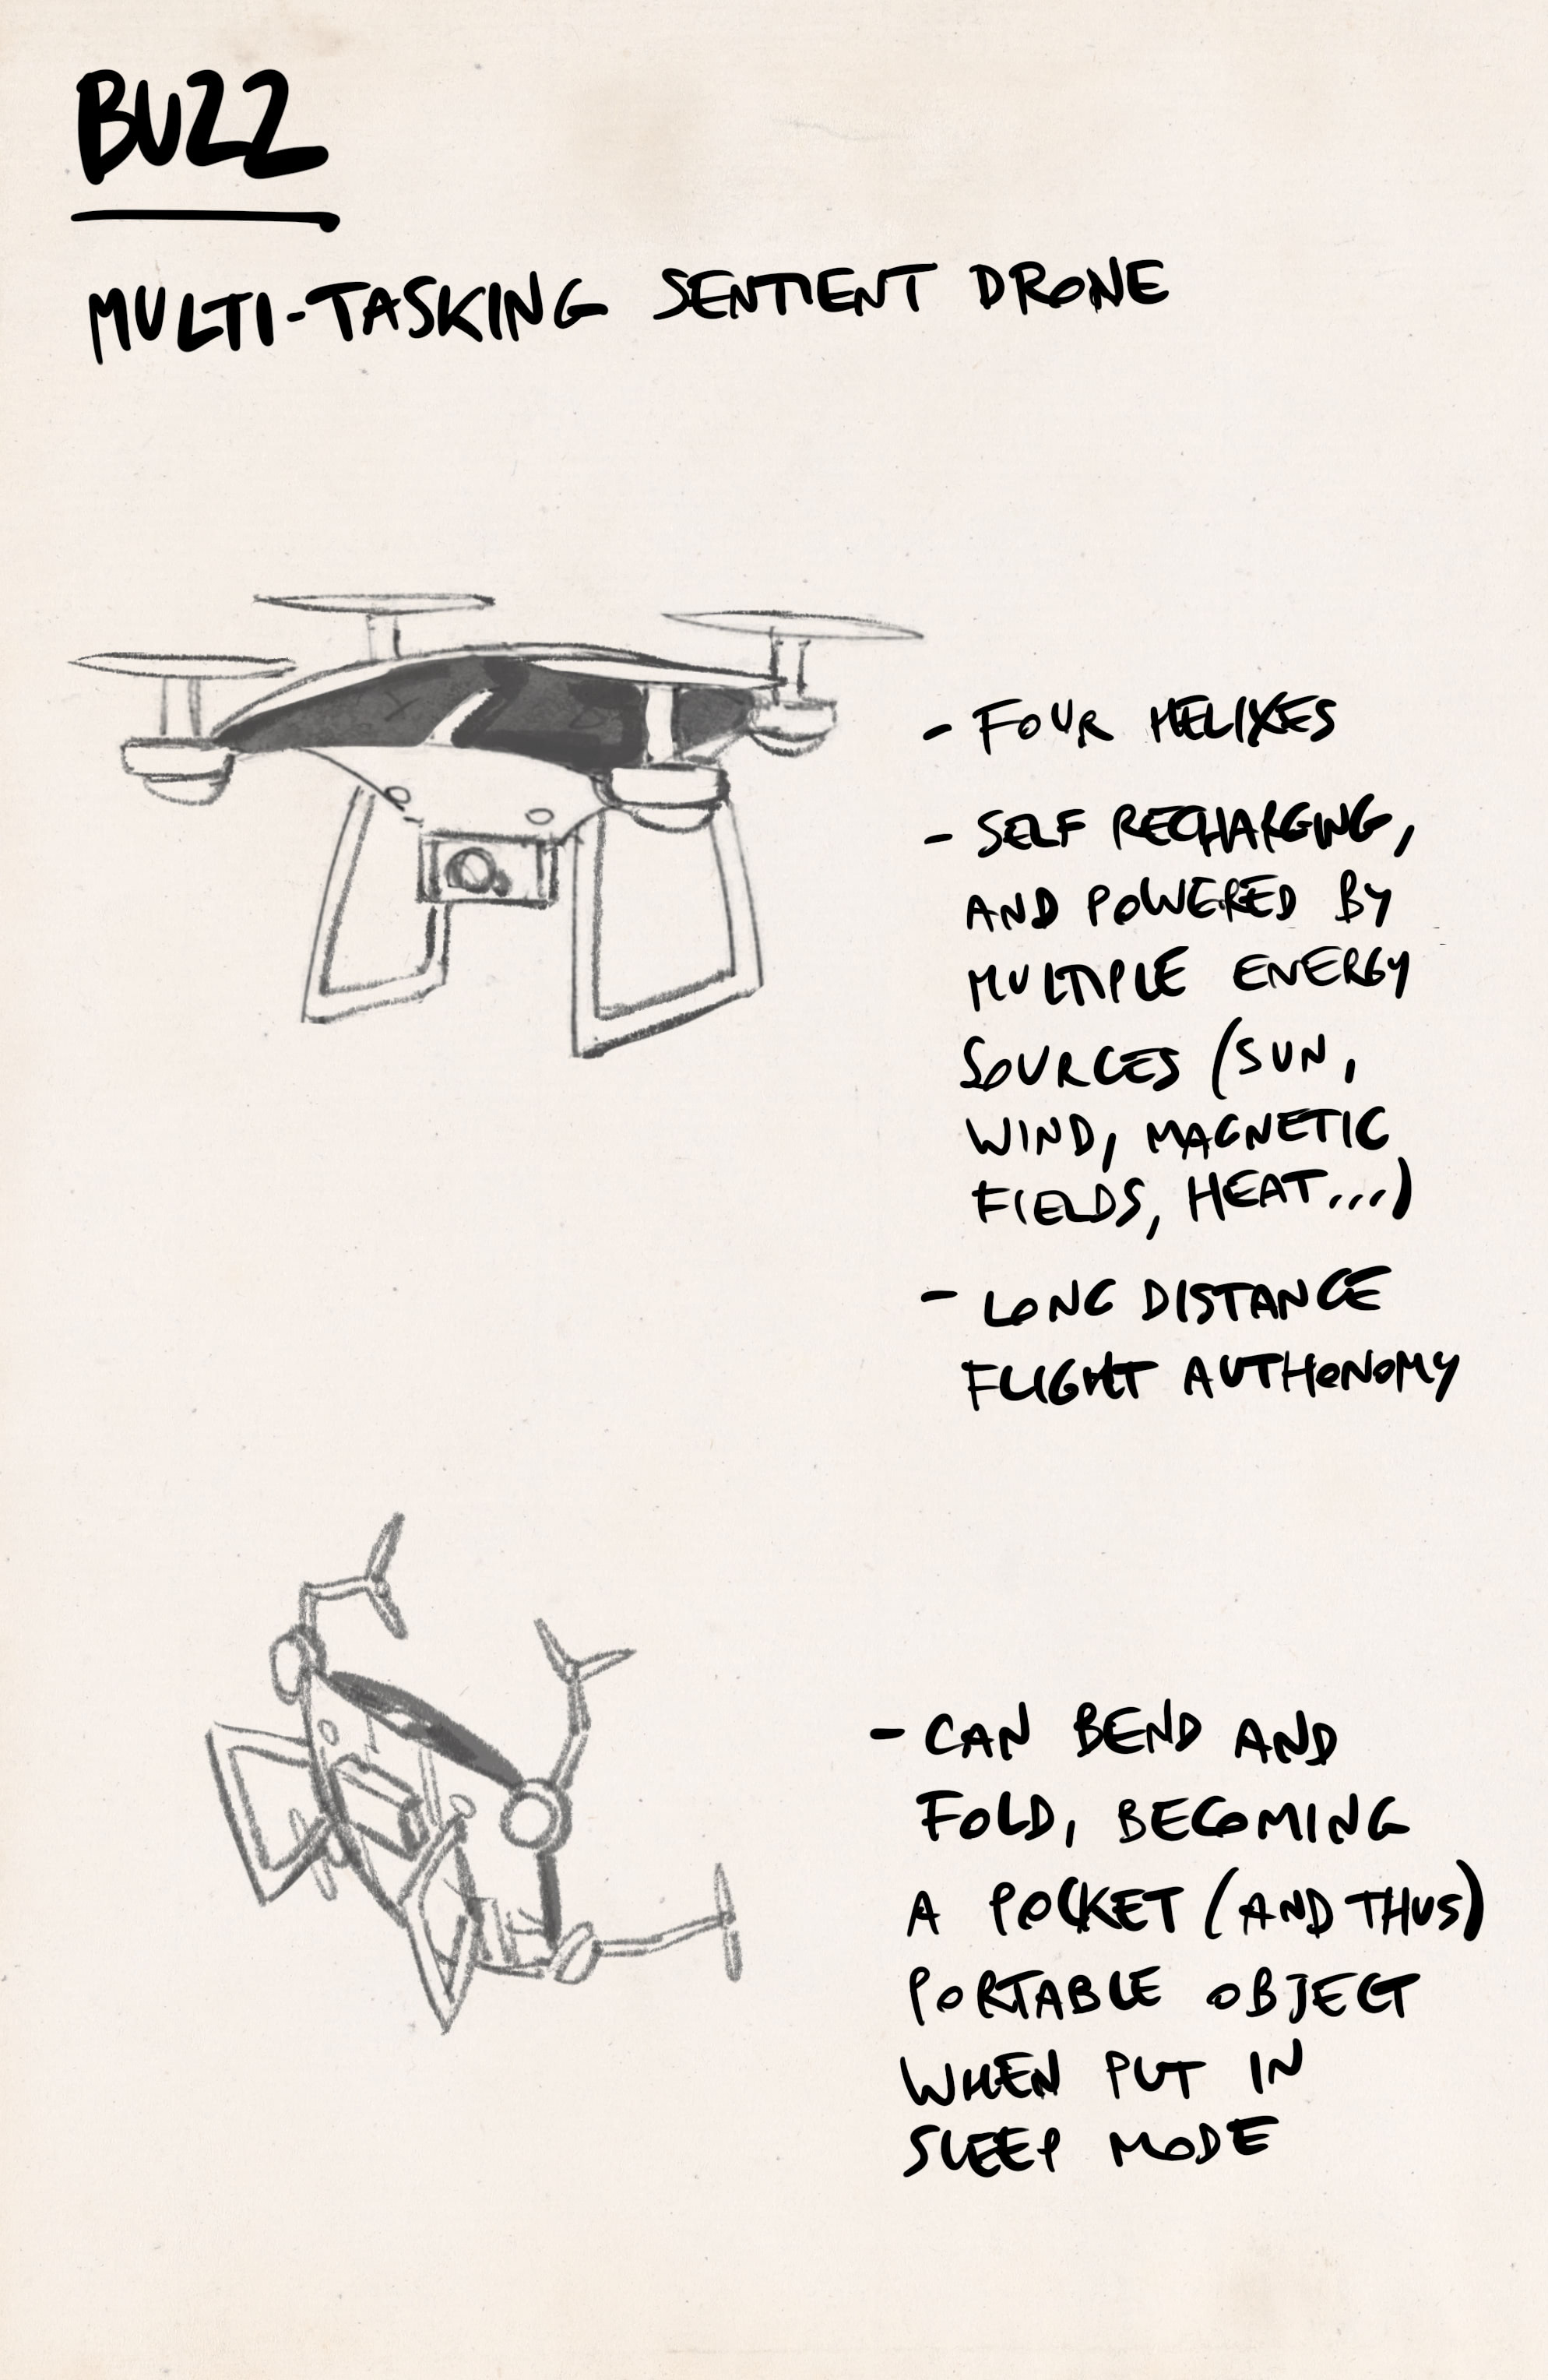 BUZZ
MULTI-TASKING SENTIENT DRONE
- FOUR HELIXES
- SELF RECHARGING,
AND POWERED BY
MULTIPLE ENERGY
SOURCES (SUN,
WIND, MAGNETIC
FIELDS, HEAT...)
- LONG DISTANCE
FLIGHT AUTHONOMY
- CAN BEND AND
FOLD, BECOMING
A POCKET (AND THUS)
PORTABLE OBJECT
WHEN PUT IN
SLEEP MODE